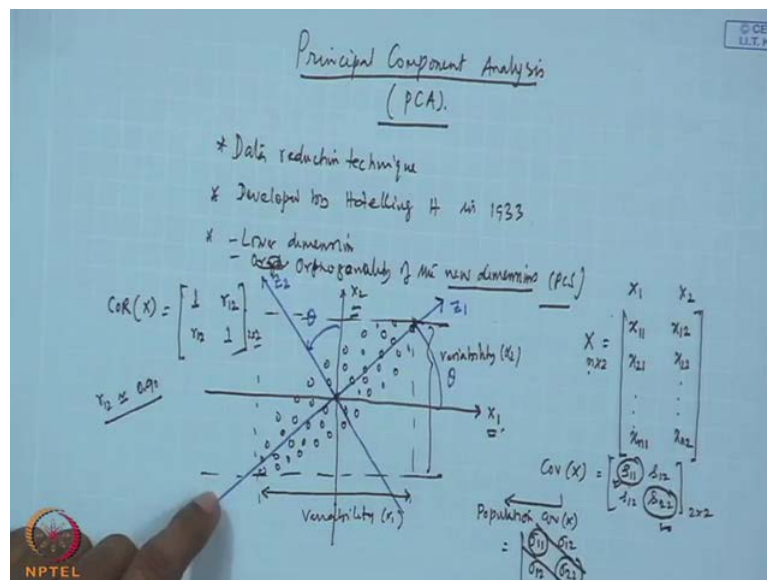 © CE
I.I.T. K
Principal Component Analysis
(PCA).
* Data reduction technique
* Developed by Hotelling H in 1933
* - Lower dimension
- Orthogonality of the new dimensions (PCS)
COR(X) = [ 1 r12
r12 1 ] 2x2
r12 ≃ 0.90
z2
θ
x2
z1
variability (x2)
θ
x1
variability (x1)
x1 x2
X = [ x11 x12
n×2 x21 x22
⋮ ⋮
xn1 xn2 ]
Cov(X) = [ s11 s12
s12 s22 ] 2x2
Population cov(x)
= [ σ11 σ12
σ12 σ22
NPTEL